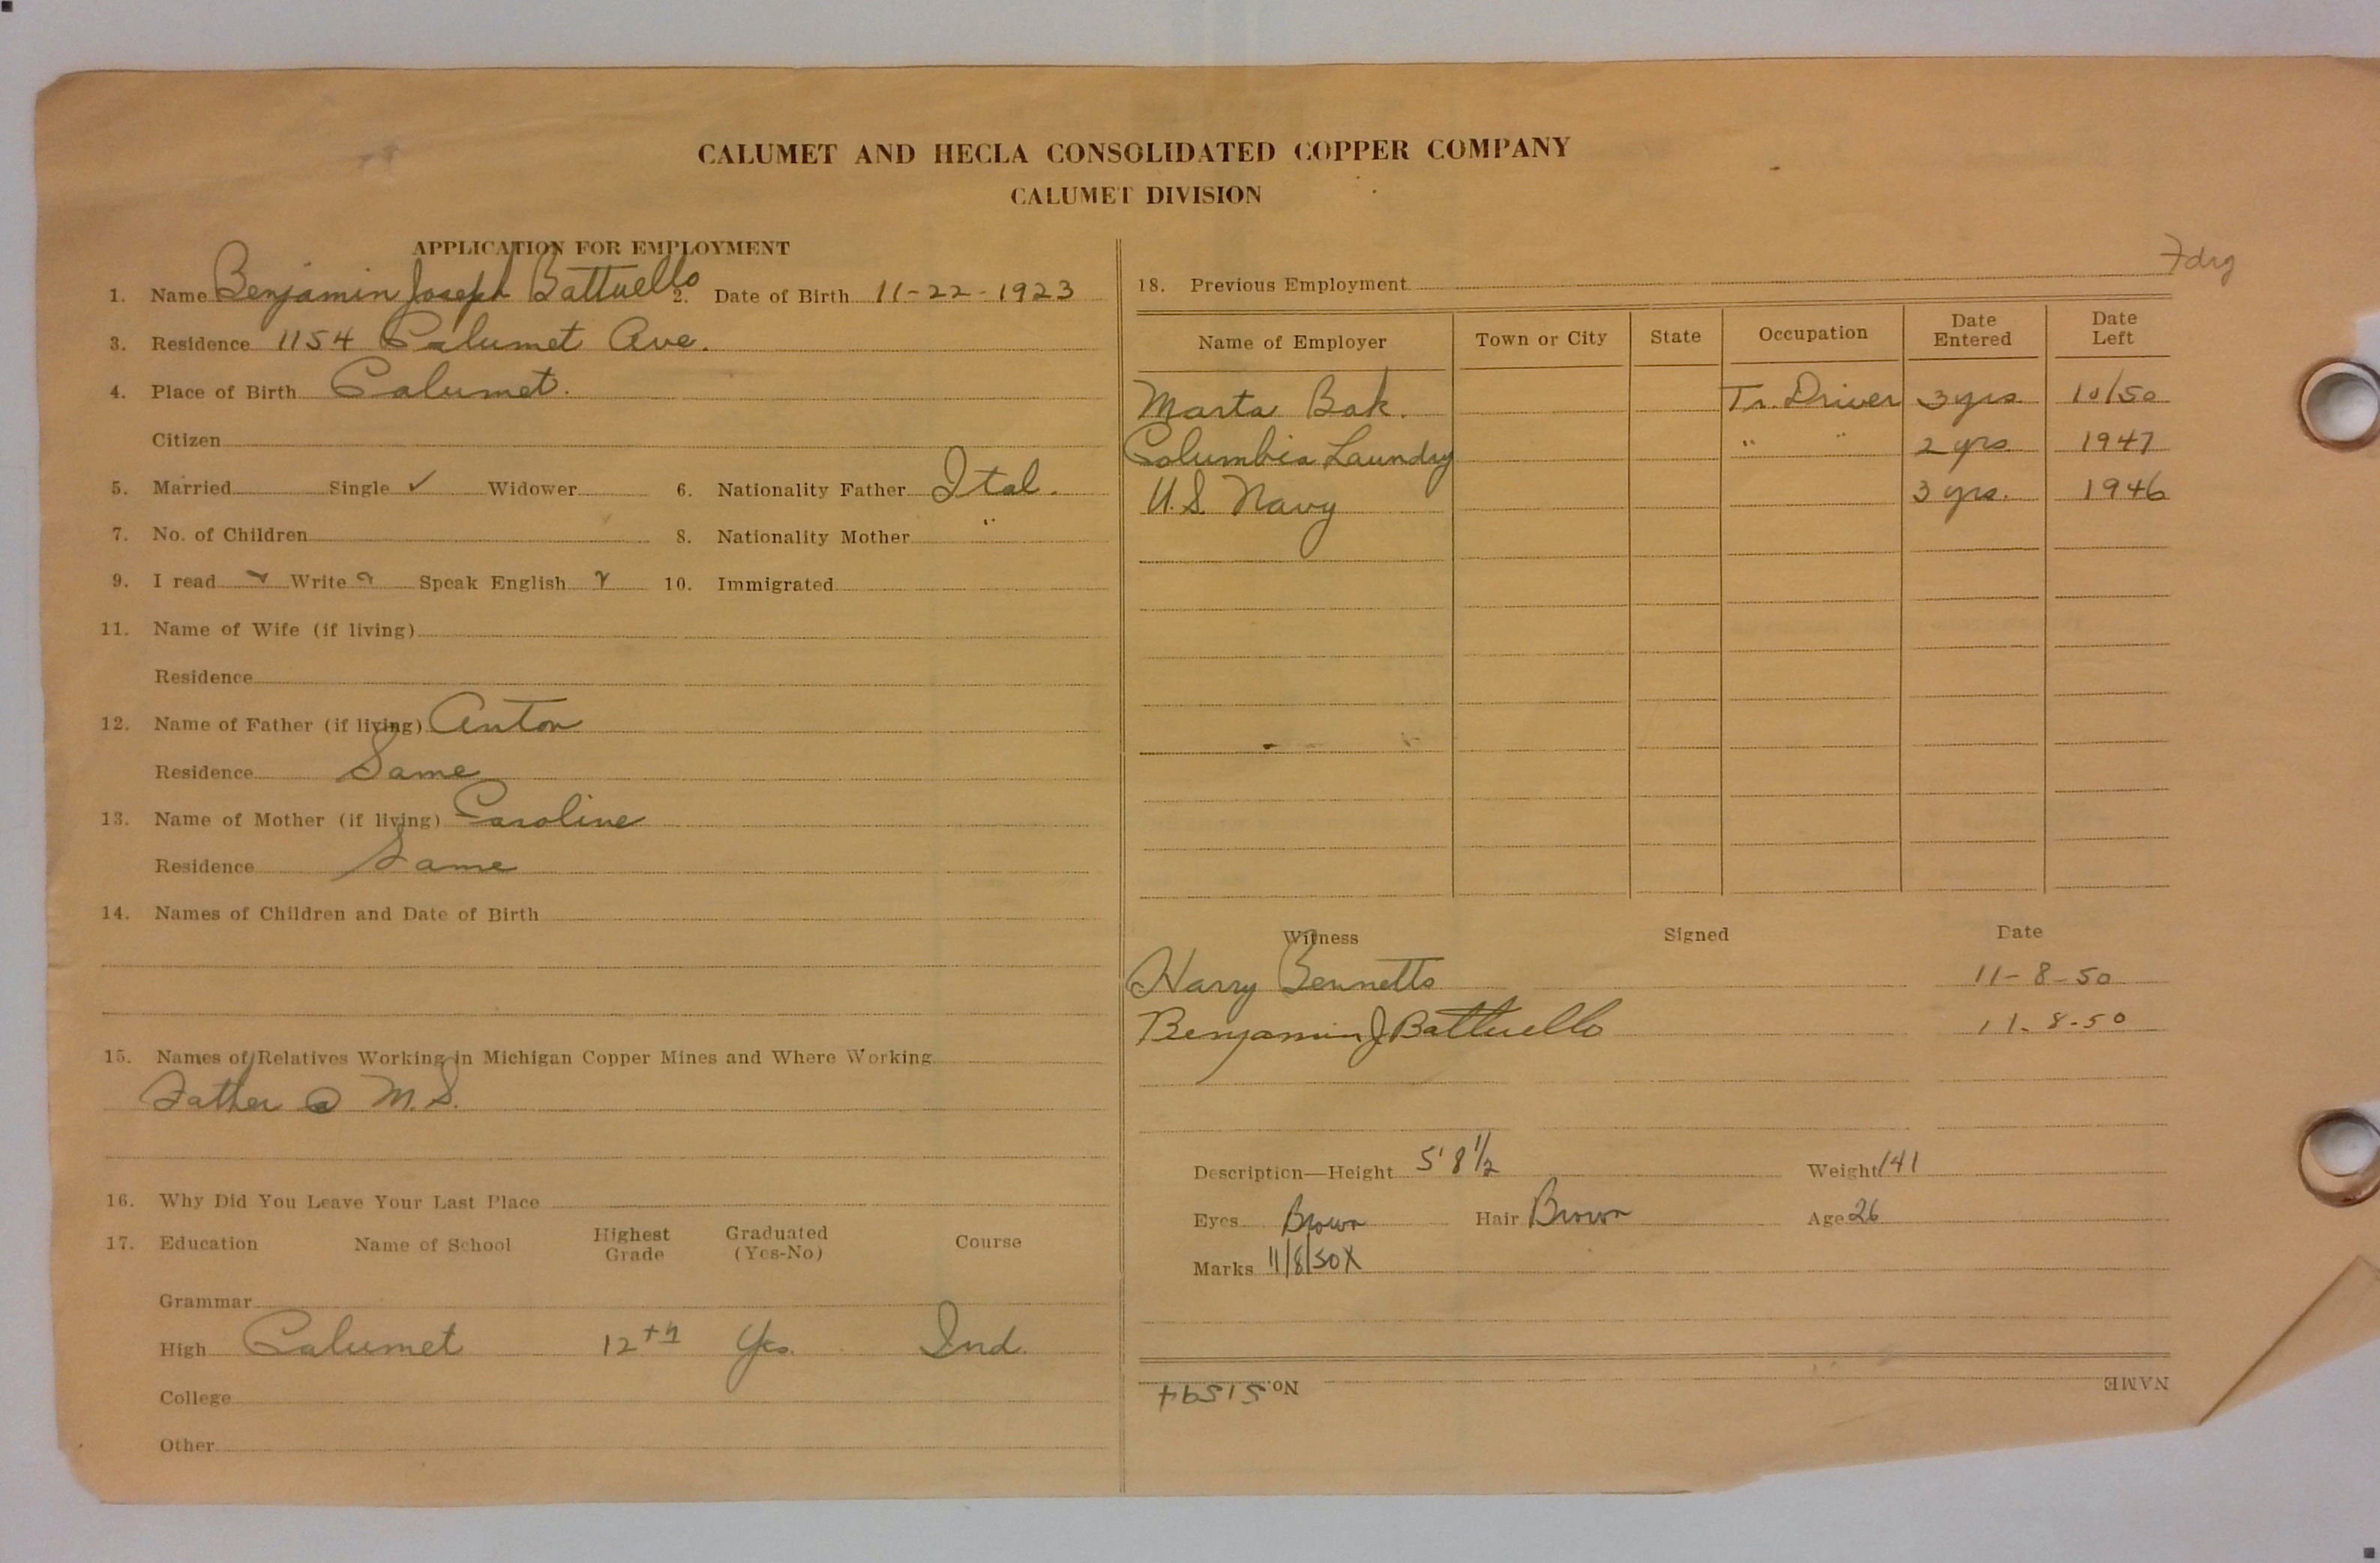 CALUMET AND HECLA CONSOLIDATED COPPER COMPANY
CALUMET DIVISION
APPLICATION FOR EMPLOYMENT
1. Name Benjamin Joseph Battuello 2. Date of Birth 11-22-1923
3. Residence 1154 Calumet Ave.
4. Place of Birth Calumet.
Citizen
5. Married Single ✓ Widower 6. Nationality Father Ital.
7. No. of Children 8. Nationality Mother "
9. I read ✓ Write ✓ Speak English ✓ 10. Immigrated
11. Name of Wife (if living)
Residence
12. Name of Father (if living) Anton
Residence Same
13. Name of Mother (if living) Caroline
Residence Same
14. Names of Children and Date of Birth
15. Names of Relatives Working in Michigan Copper Mines and Where Working
Father @ M.S.
16. Why Did You Leave Your Last Place
17. Education Name of School Highest Grade Graduated (Yes-No) Course
Grammar
High Calumet 12th Yes. Ind.
College
Other
Fdry
18. Previous Employment
Name of Employer Town or City State Occupation Date Entered Date Left
Marta Bak. Tr. Driver 3 yrs 10/50
Columbia Laundry " " 2 yrs. 1947
U.S. Navy 3 yrs. 1946
Witness Signed Date
Harry Bennetts 11-8-50
Benjamin J Battuello 11-8-50
Description—Height 5' 8 1/2 Weight 141
Eyes Brown Hair Brown Age 26
Marks 11/8/50X
NAME No. 51594